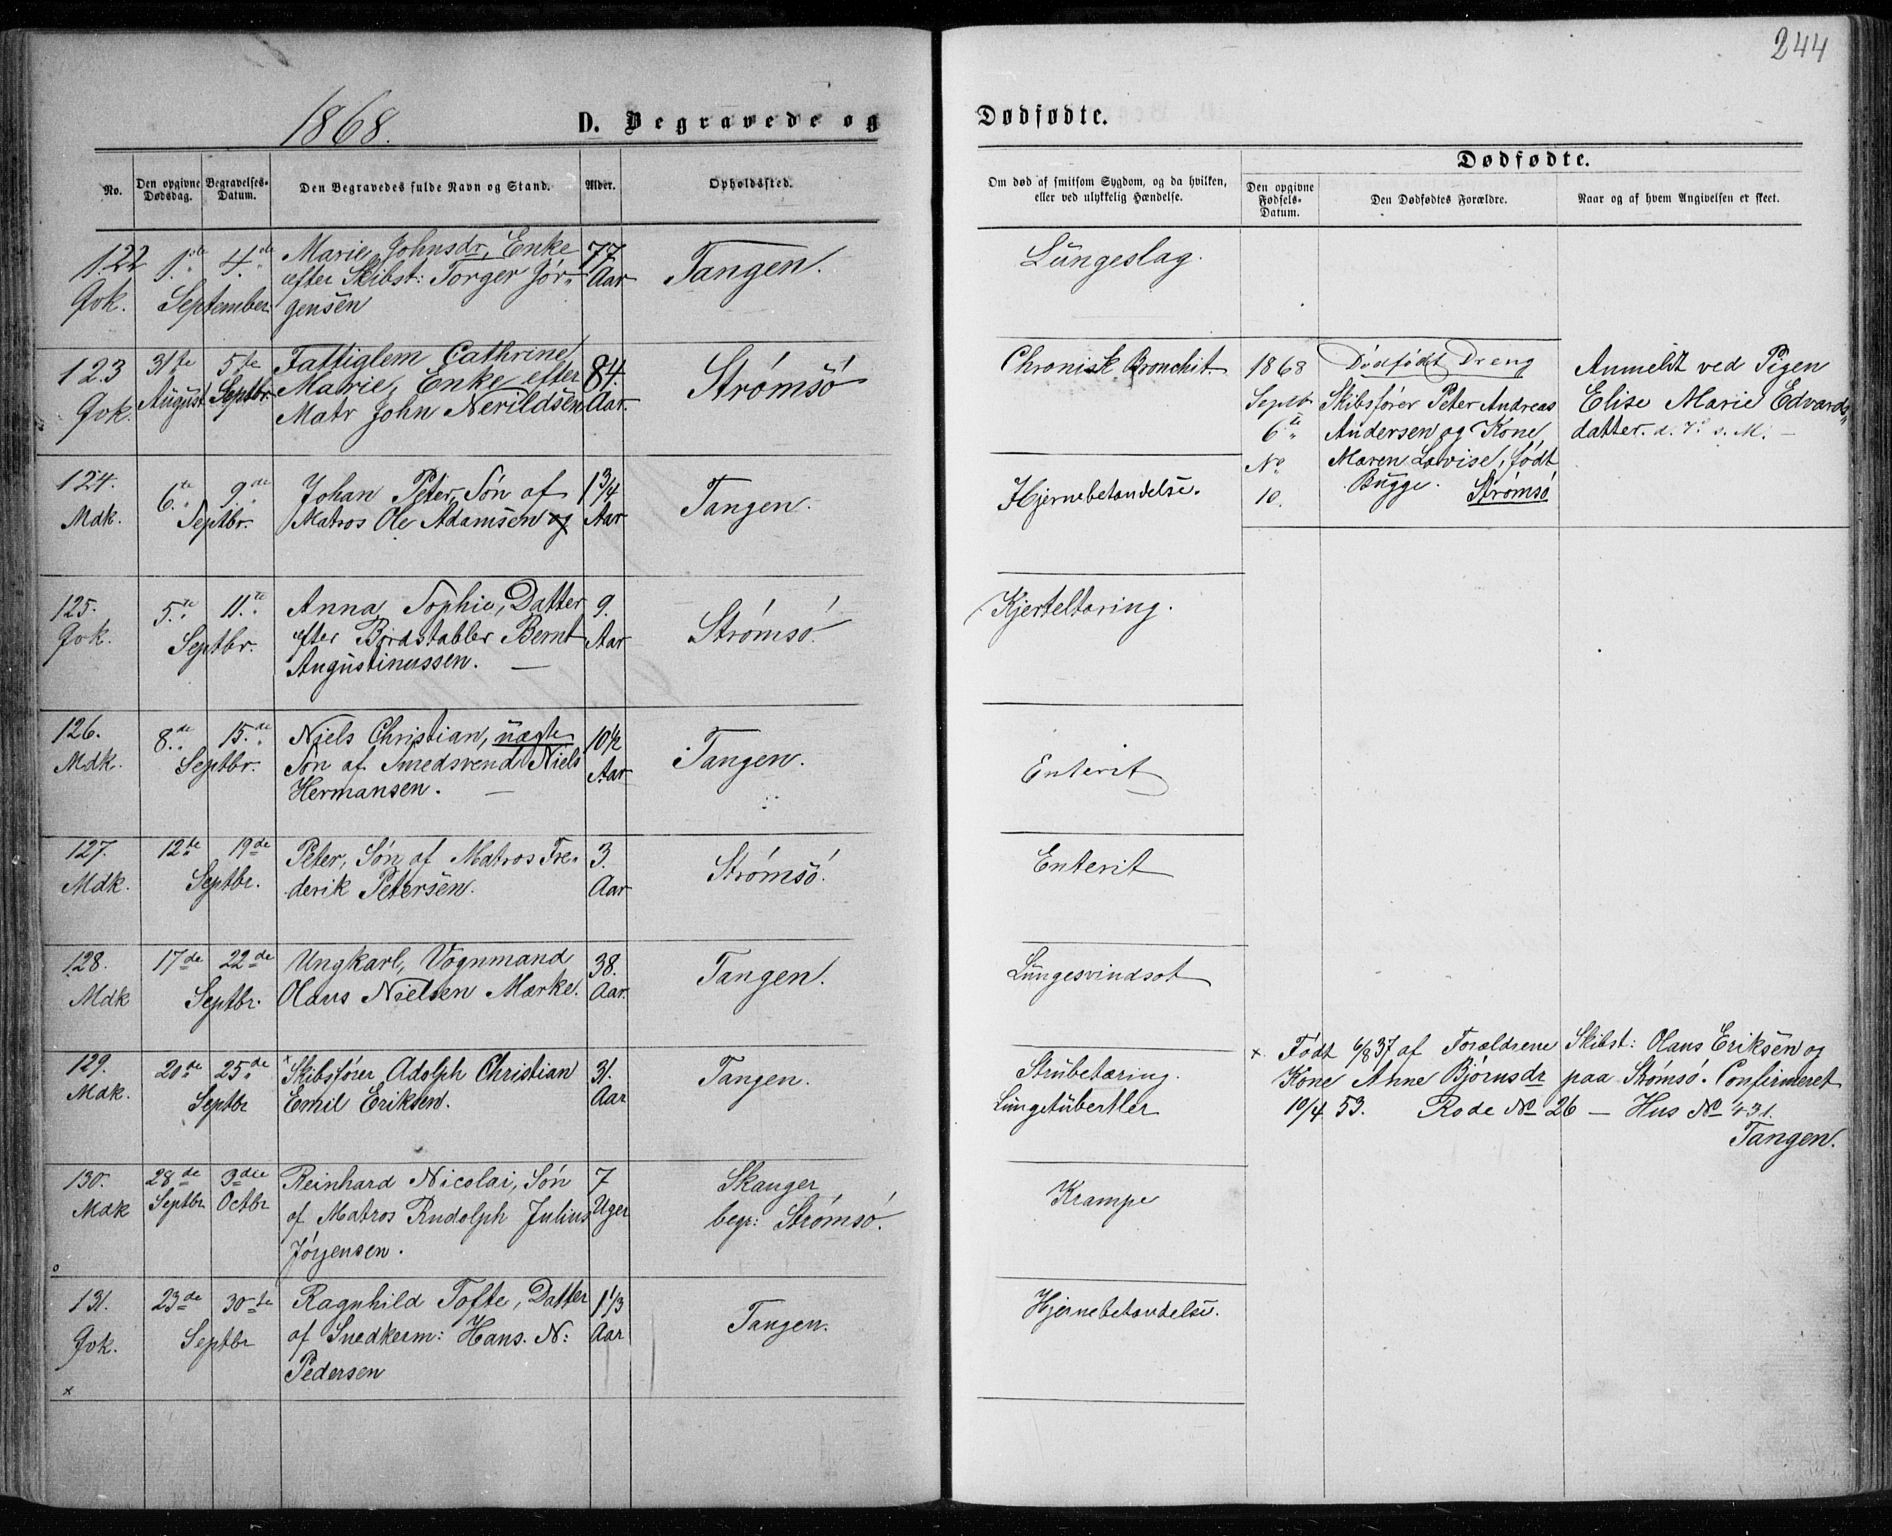 244
1868.
D. Begravede og
Dødfødte.
No.
Den opgivne Dødsdag.
Begravelses-Datum.
Den Begravedes fulde Navn og Stand.
Alder.
Opholdssted.
Om død af smitsom Sygdom, og da hvilken,
eller ved ulykkelig Hændelse.
Dødfødte.
Den opgivne Fødsels-Datum.
Den Dødfødtes Forældre.
Naar og af hvem Angivelsen er skeet.
122 1ste 4.de Marie Johnsdr, Enke 77 Tangen. Lungeslag.
Qvk. September efter Skibst: Torger Jør- Aar
gensen
123 31te 5te Fattiglem Cathrine 84. Strømsö Chronisk Bronchit.
Qvk. August Septbr. Marie, Enke efter Aar.
Matr John Nerildsen
1868 Dødfødt Dreng Anmeldt ved Pigen
Septbr Skibsfører Peter Andreas Elise Marie Edvards
6te Andersen og Kone, datter. d. 7de s. M. —
No Maren Lovise, født
10. Bugge. Strömsö
124. 6.te 9.de Johan Peter, Søn af 1 3/4 Tangen. Hjernebetændelse.
Mdk. Septbr. Matros Ole Adamsen og Aar
125. 5.te 11.te Anna Sophie, Datter 9. Strömsö. Kjerteltæring.
Qvk. Septbr. efter Bordstabler Bernt Aar
Augustinussen. —
126. 8.de 15.de Niels Christian, uægte 10 1/2 Tangen. Enterit
Mdk. Septbr. Søn af Smedsvend Niels Aar
Hermansen. —
127. 12te 19de Peter, Søn af Matros Fre- 3. Strömsö. Enterit
Mdk. Septbr. derik Petersen. Aar
128. 17de 22de Ungkarl, Vognmand 38. Tangen. Lungesvindsot
Mdk Septbr. Olaus Nielsen Mærke. Aar.
129. 20de 25de x Skibsfører Adolph Christian 31. Tangen. Strubetæring.
Mdk. Septbr Emil Eriksen. Aar Lungetuberkler
x. Født 6/8 37 af Forældrene Skibst: Olaus Eriksen og
Kone Anne Björnsdr paa Strömsö. Confirmeret
10/4 53. Rode No 26 — Hus No 431.
Tangen.
130. 28de 3die Reinhard Nicolai, Søn 7 Skanger Krampe
Mdk Septbr Octbr af Matros Rudolph Julius Uger begr: Strömsö.
Jörgensen.
131. 23de 30te Ragnhild Tofte, Datter 1 1/3 Tangen. Hjernebetændelse.
Qvk. Septbr af Snedkerm: Hans. N: Aar
Pedersen
x